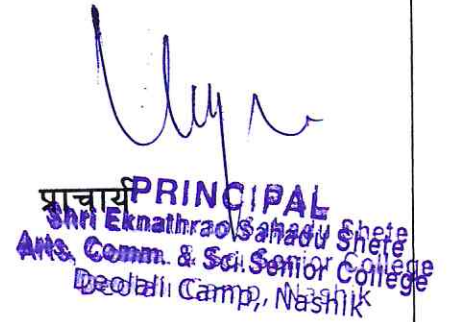 प्राचार्य PRINCIPAL
Shri Eknathrao Sahadu Shete
Arts, Comm. & Sci. Senior College
Deolali Camp, Nashik